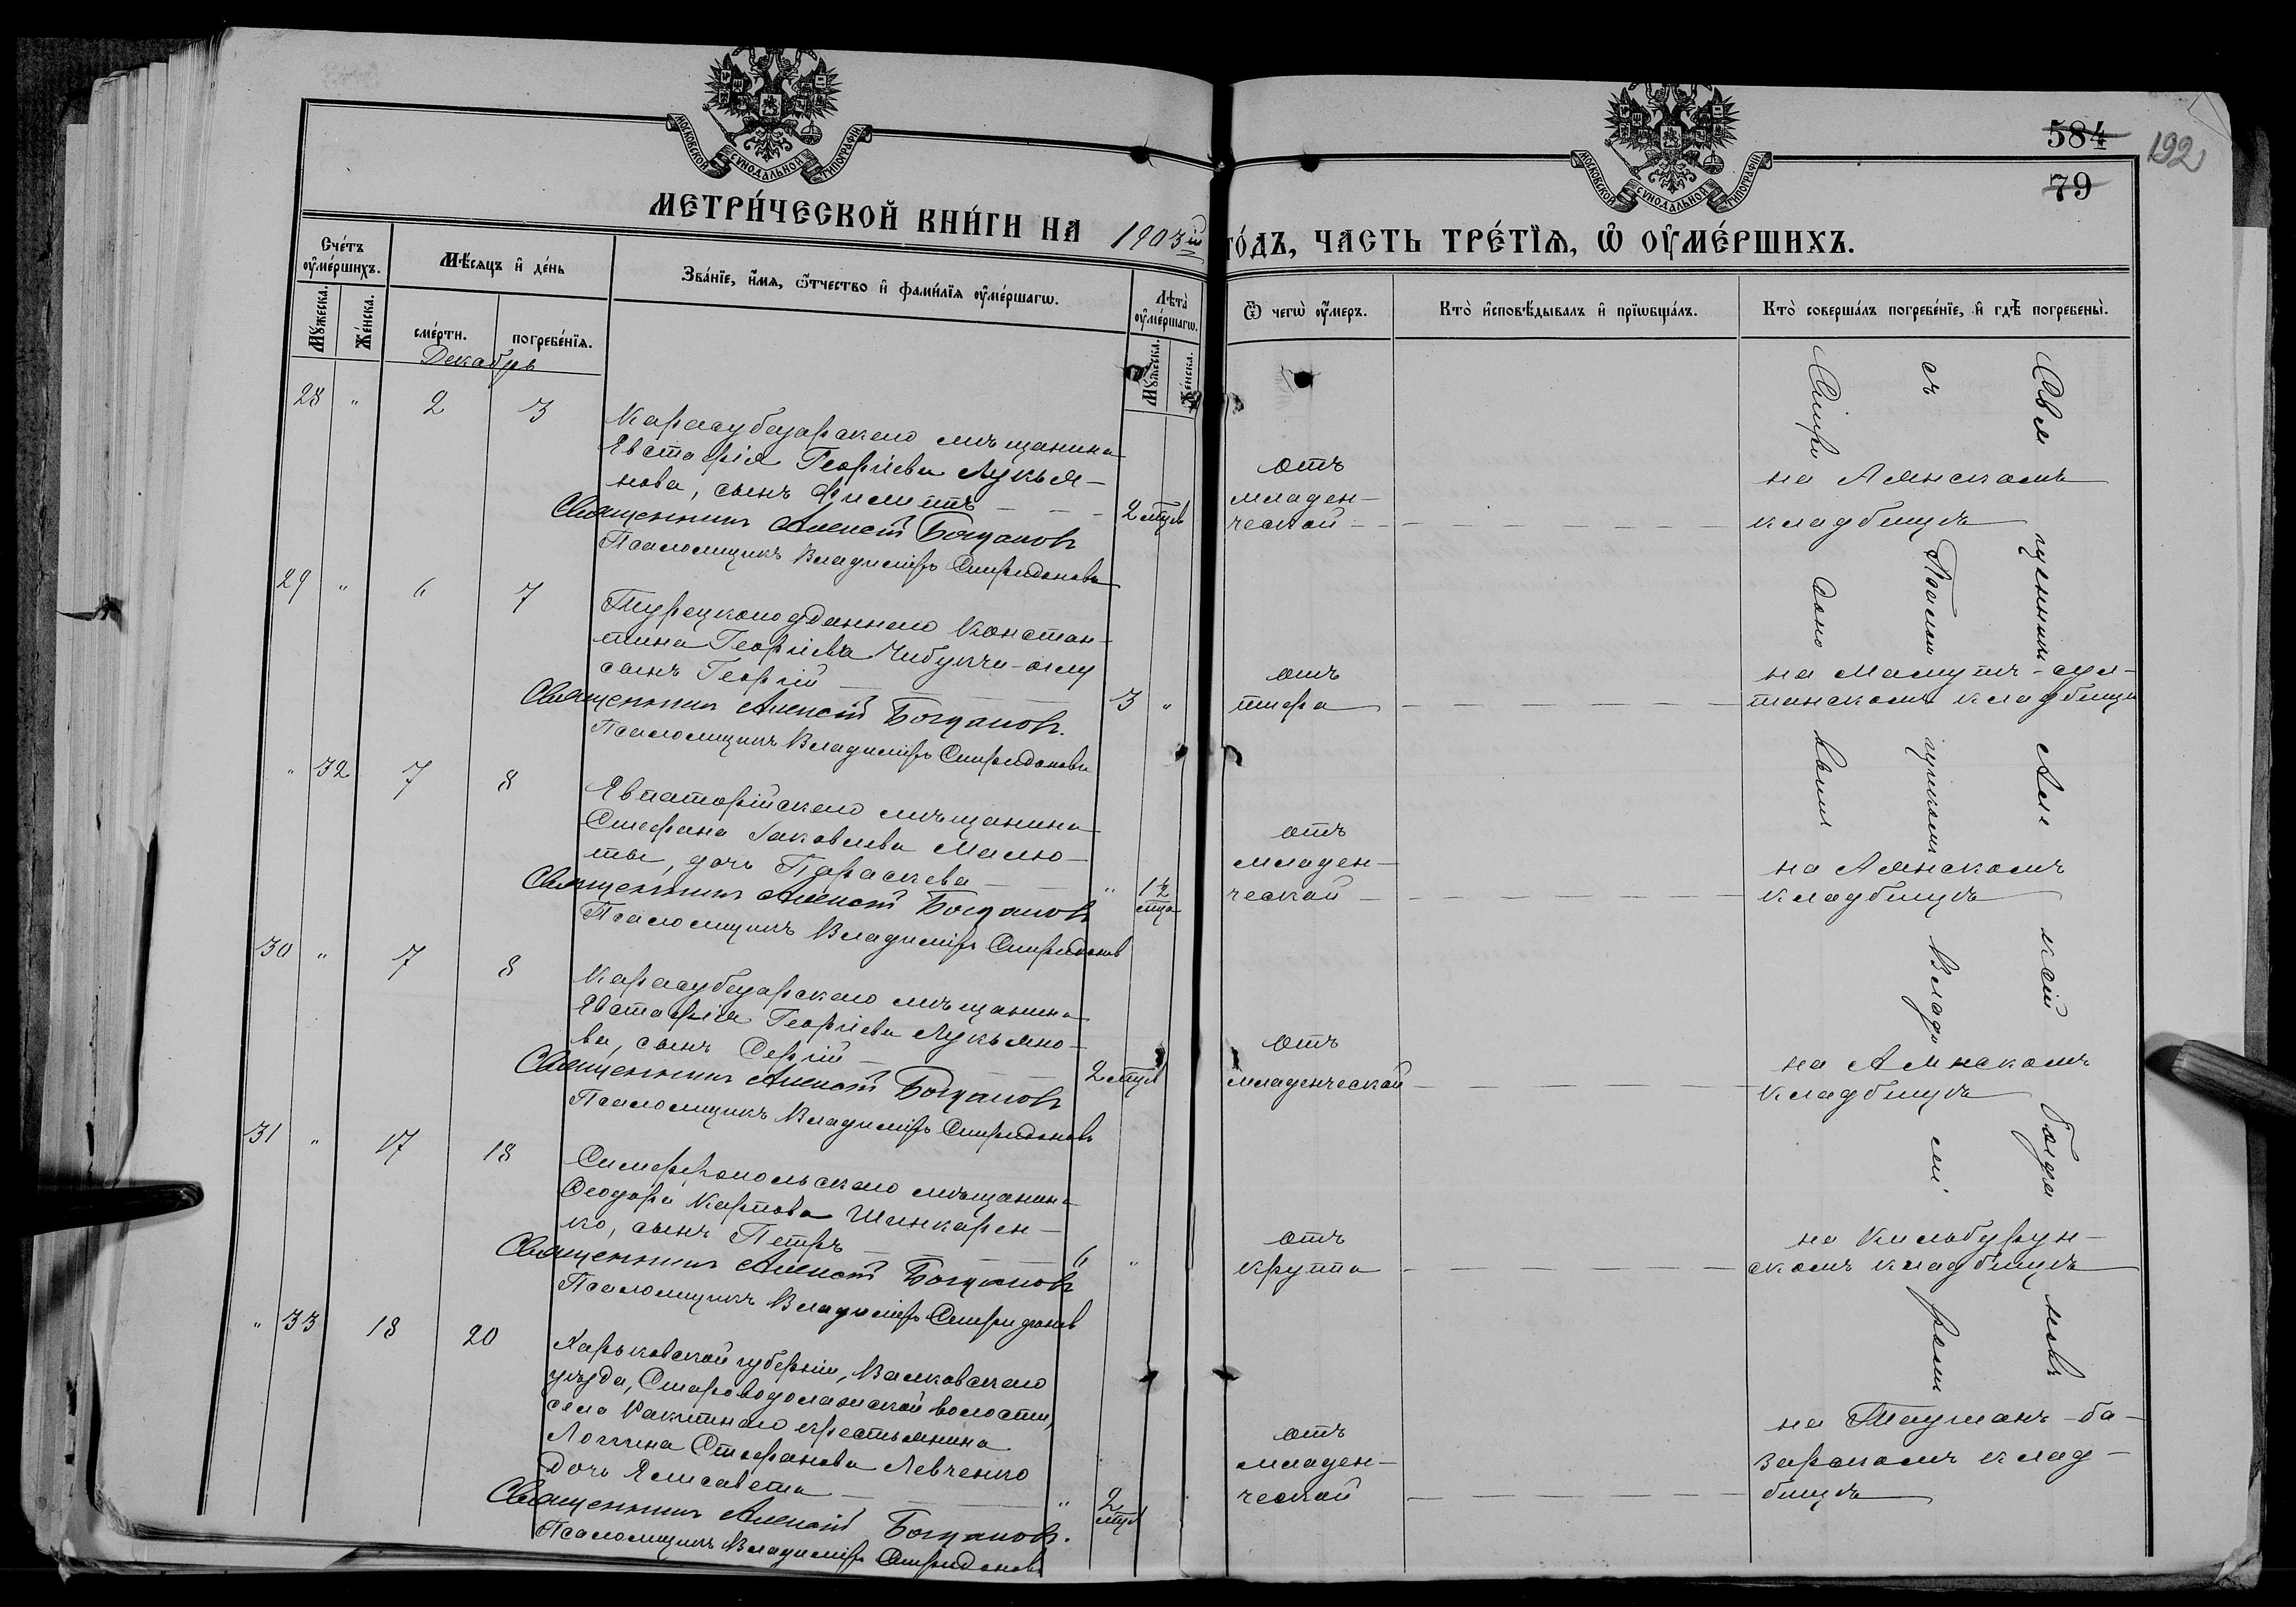 МОСКОВСКОЙ СУНОДАЛЬНОЙ ТИПОГРАФІИ
МОСКОВСКОЙ СУНОДАЛЬНОЙ ТИПОГРАФІИ
584
192
79
МЕТРИ́ЧЕСКОЙ КНИ́ГИ НА 1903й го́дъ, ЧАСТЬ ТРЕ́ТІѦ, Ѡ ОУМЕ́РШИХЪ.
Сче́тъ оуме́ршихъ.
Мѣ́сяцъ и де́нь
Зва́нїе, и́мѧ, ѻ́тчество и фами́лїѧ оуме́ршагѡ.
Лѣта̀ оуме́ршагѡ.
Ѿ чегѡ̀ оу́меръ.
Кто̀ и҆сповѣ́дывалъ и҆ прїѡбща́лъ.
Кто̀ соверша́лъ погребе́нїе, и҆ гдѣ̀ погребены̀.
Мꙋ́жеска.
Же́нска.
сме́рти.
погребе́нїѧ.
Мꙋ́жеска.
Же́нска.
Декабрь
28 " 2 3
Карасубазарскаго мѣщанина
Евстафія Георгіева Лукья-
нова, сынъ Филиппъ 2 мѣц.
Священникъ Алексій Богдановъ
Псаломщикъ Владиміръ Спиридоновъ
отъ
младен-
ческой
на Аянскомъ
кладбищѣ
29 " 6 7
Турецкоподданнаго Констан-
тина Георгіева Чибукчи-оглу
сынъ Георгій 3 "
Священникъ Алексій Богдановъ.
Псаломщикъ Владиміръ Спиридоновъ
отъ
тифа
на Мамутъ-сул-
танскомъ кладбищѣ
" 32 7 8
Евпаторійскаго мѣщанина
Стефана Іаковлева Малю-
ты, дочь Параскева " 1½ мѣца
Священникъ Алексій Богдановъ
Псаломщикъ Владиміръ Спиридоновъ
отъ
младен-
ческой
на Аянскомъ
кладбищѣ
30 " 7 8
Карасубазарскаго мѣщанина
Евстафія Георгіева Лукьяно-
ва, сынъ Сергій 2 мѣц.
Священникъ Алексій Богдановъ
Псаломщикъ Владиміръ Спиридоновъ
отъ
младенческой
на Аянскомъ
кладбищѣ
31 " 17 18
Симферопольскаго мѣщанина
Ѳеодора Карпова Шинкарен-
ко, сынъ Петръ 6 "
Священникъ Алексій Богдановъ
Псаломщикъ Владиміръ Спиридоновъ
отъ
круппа
на Кильбурун-
скомъ кладбищѣ
" 33 18 20
Харьковской губерніи, Валковскаго
уѣзда, Староводолажской волости,
села Ракитнаго крестьянина
Логгина Стефанова Левченко
дочь Елисавета " 2 мѣц.
Священникъ Алексій Богдановъ.
Псаломщикъ Владиміръ Спиридоновъ
отъ
младен-
ческой
на Тауманъ-ба-
зарскомъ клад-
бищѣ
Священникъ Алексій Богдановъ
съ Псаломщикомъ Владиміромъ
Спиридоновымъ